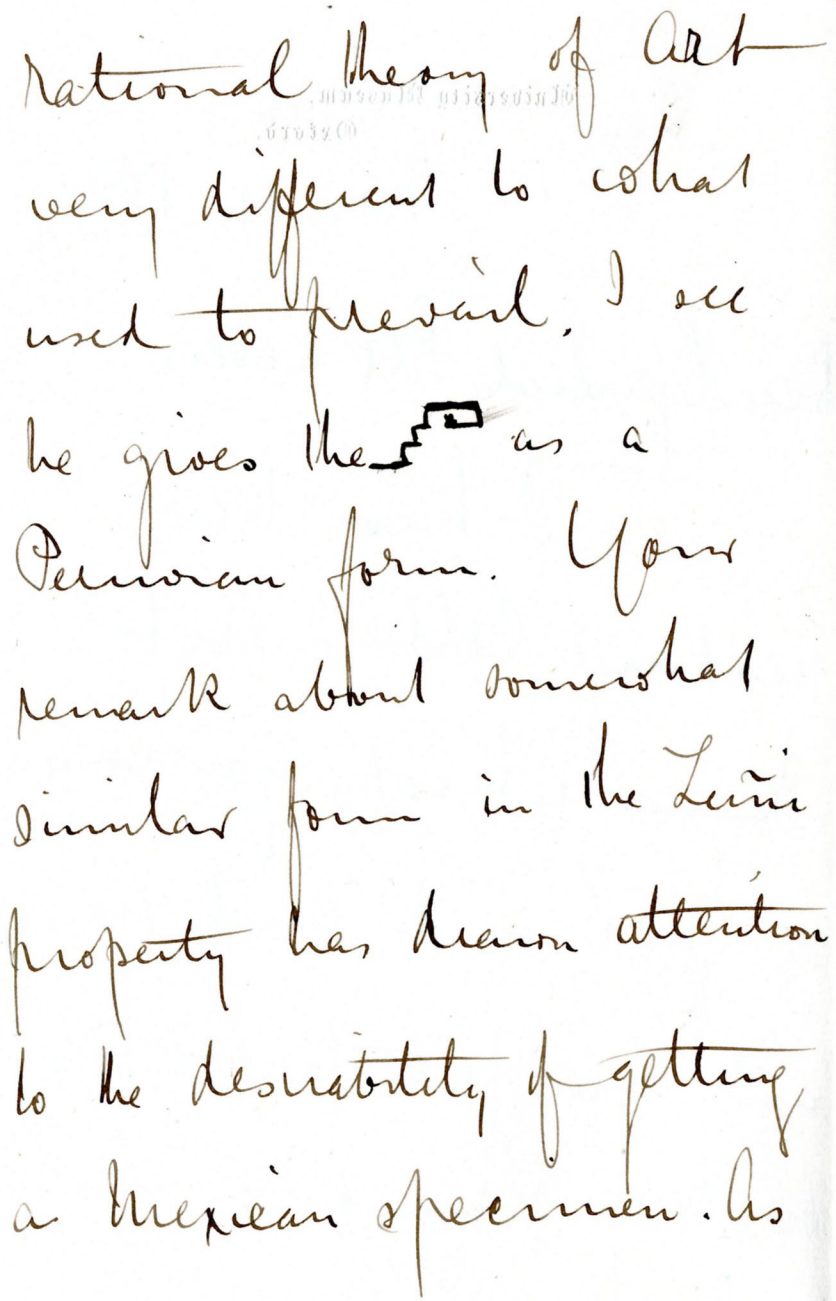 rational theory of Art
University Museum,
Oxford.
very different to what
used to prevail. I see
he gives the as a
Peruvian form. Your
remark about somewhat
similar form in the Zuñi
property has drawn attention
to the desirability of getting
a Mexican specimen. As